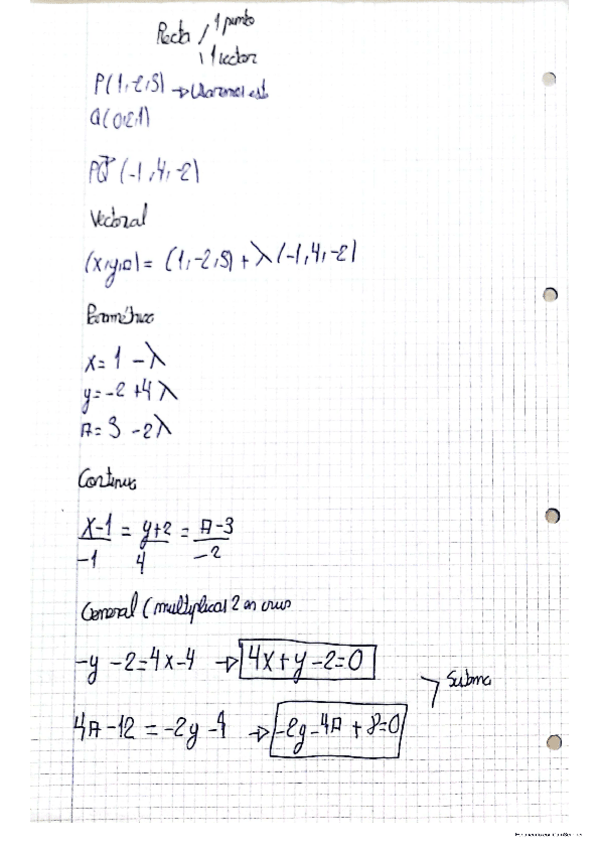 Recta / 1 punto
\ 1 vector
P(1,-2,3) → Usaremos est
Q(0,2,1)
PQ→ (-1,4,-2)
Vectorial
(x,y,z) = (1,-2,3) + λ(-1,4,-2)
Paramétrica
x= 1 -λ
y= -2 +4λ
z= 3 -2λ
Continua
x-1/-1 = y+2/4 = z-3/-2
General (multiplicas 2 en cruz
-y -2=4x-4 → 4x+y-2=0
4z-12 = -2y -4 → -2y-4z+8=0